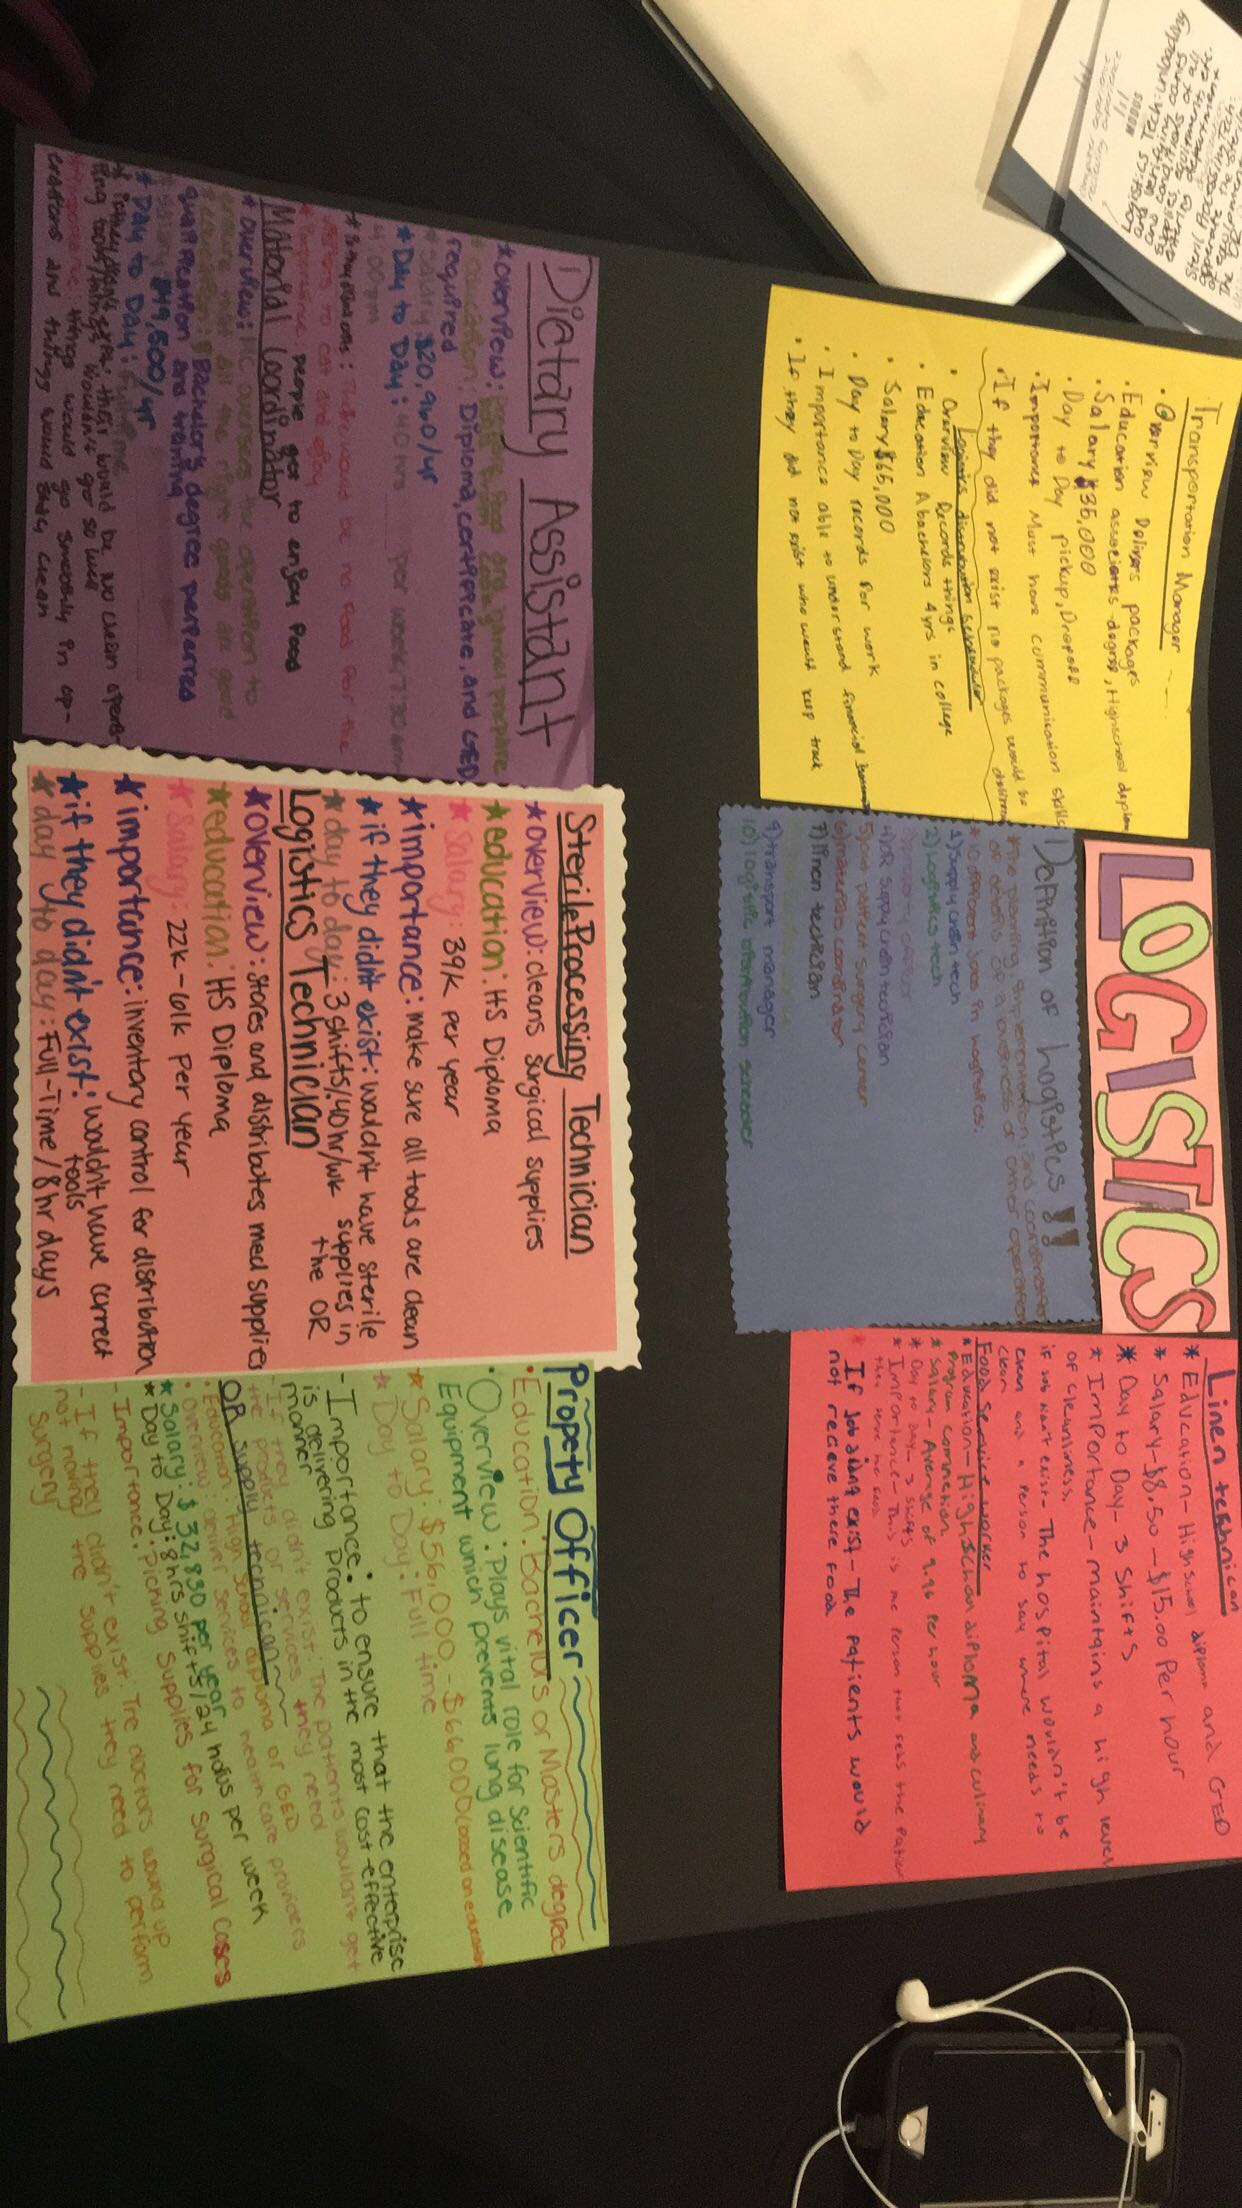 LOGISTICS
Transportation Manager
• Overview Delivers packages
• Education associates degree, Highschool diplom
• Salary $35,000
• Day to Day pickup, Dropoff
• Importance Must have communication skills
• If they did not exist no packages would be delivered
Logistics distribution scheduler
• Overview Records things
• Education A bachelors 4yrs in college
• Salary $65,000
• Day to Day records for work
• Importance able to understand financial
• If they did not exist who would keep track
Definition of Logistics!!
The planning, implementation, and coordination
of details of a business or other operation
* 10 different Jobs in logistics:
1) Supply chain tech
2) Logistics tech
4) OR supply chain technician
5) out patient surgery center
6) materials coordinator
7) linen technician
9) transport manager
10) logistic distribution scheduler
Linen technican
* Education - High school diploma and GED
* Salary - $8.50 - $15.00 Per hour
* Day to Day - 3 Shifts
* Importance - maintains a high level
of cleanliness.
if job wasn't exist - The hospital wouldn't be
clean and a person to say where needs to
clean
Food Service worker
* Education - High school diploma and culinary
Program completion
* Salary - Average of 9.96 per hour
* Day to Day - 3 shifts
* Importance - This is the person that feeds the Patien
* If job didn't exist - The Patients would
not recieve there food
Dictary Assistant
* Overview:
* education: Diploma, certificate, and GED
required
* salary: $20,960/yr
* Day to Day: 40 hrs per week/7:30 am-
4:00pm
there would be no food for the
* Importance: people get to enjoy food
Material Coordinator
* Overview: MC oversees the operation to
ensure that all the right goods are good
* education: Bachelor's degree perferred
qualification and training
$49,500/yr
* Day to Day: full time
* if they dont exist: there would be no clean opera-
ting tools/things wouldn't go so well
* Importance: things would go smoothly in op-
erations and things would stay clean
Sterile Processing Technician
* overview: cleans surgical supplies
* education: HS Diploma
* Salary: 39k per year
* importance: make sure all tools are clean
* if they didn't exist: wouldn't have sterile
supplies in
the OR
* day to day: 3 shifts/40hr/wk
Logistics Technician
* overview: stores and distributes med supplies
* education: HS Diploma
* Salary: 22k-61k per year
* importance: inventory control for distribution
* if they didn't exist: wouldn't have correct
tools
* day to day: Full-Time / 8hr days
Propety Officer
• Education: Bachelors or Masters degree
• Overview: Plays vital role for Scientific
Equipment which prevents lung disease
* Salary: $56,000-$66,000 (based on education
* Day to Day: Full time
- Importance: to ensure that the enterprise
is delivering Products in the most cost-effective
manner
- If they didn't exist: The patients wouldn't get
the products or services they need
OR supply technician
• Education: High school diploma or GED
• Overview: deliver services to health care providers
* Salary: $32,830 per year
* Day to Day: 8hrs shifts/24 hours per week
- Importance: Picking Supplies for Surgical Cases
- If they didn't exist: The doctors wound up
not having the supplies they need to perform
Surgery